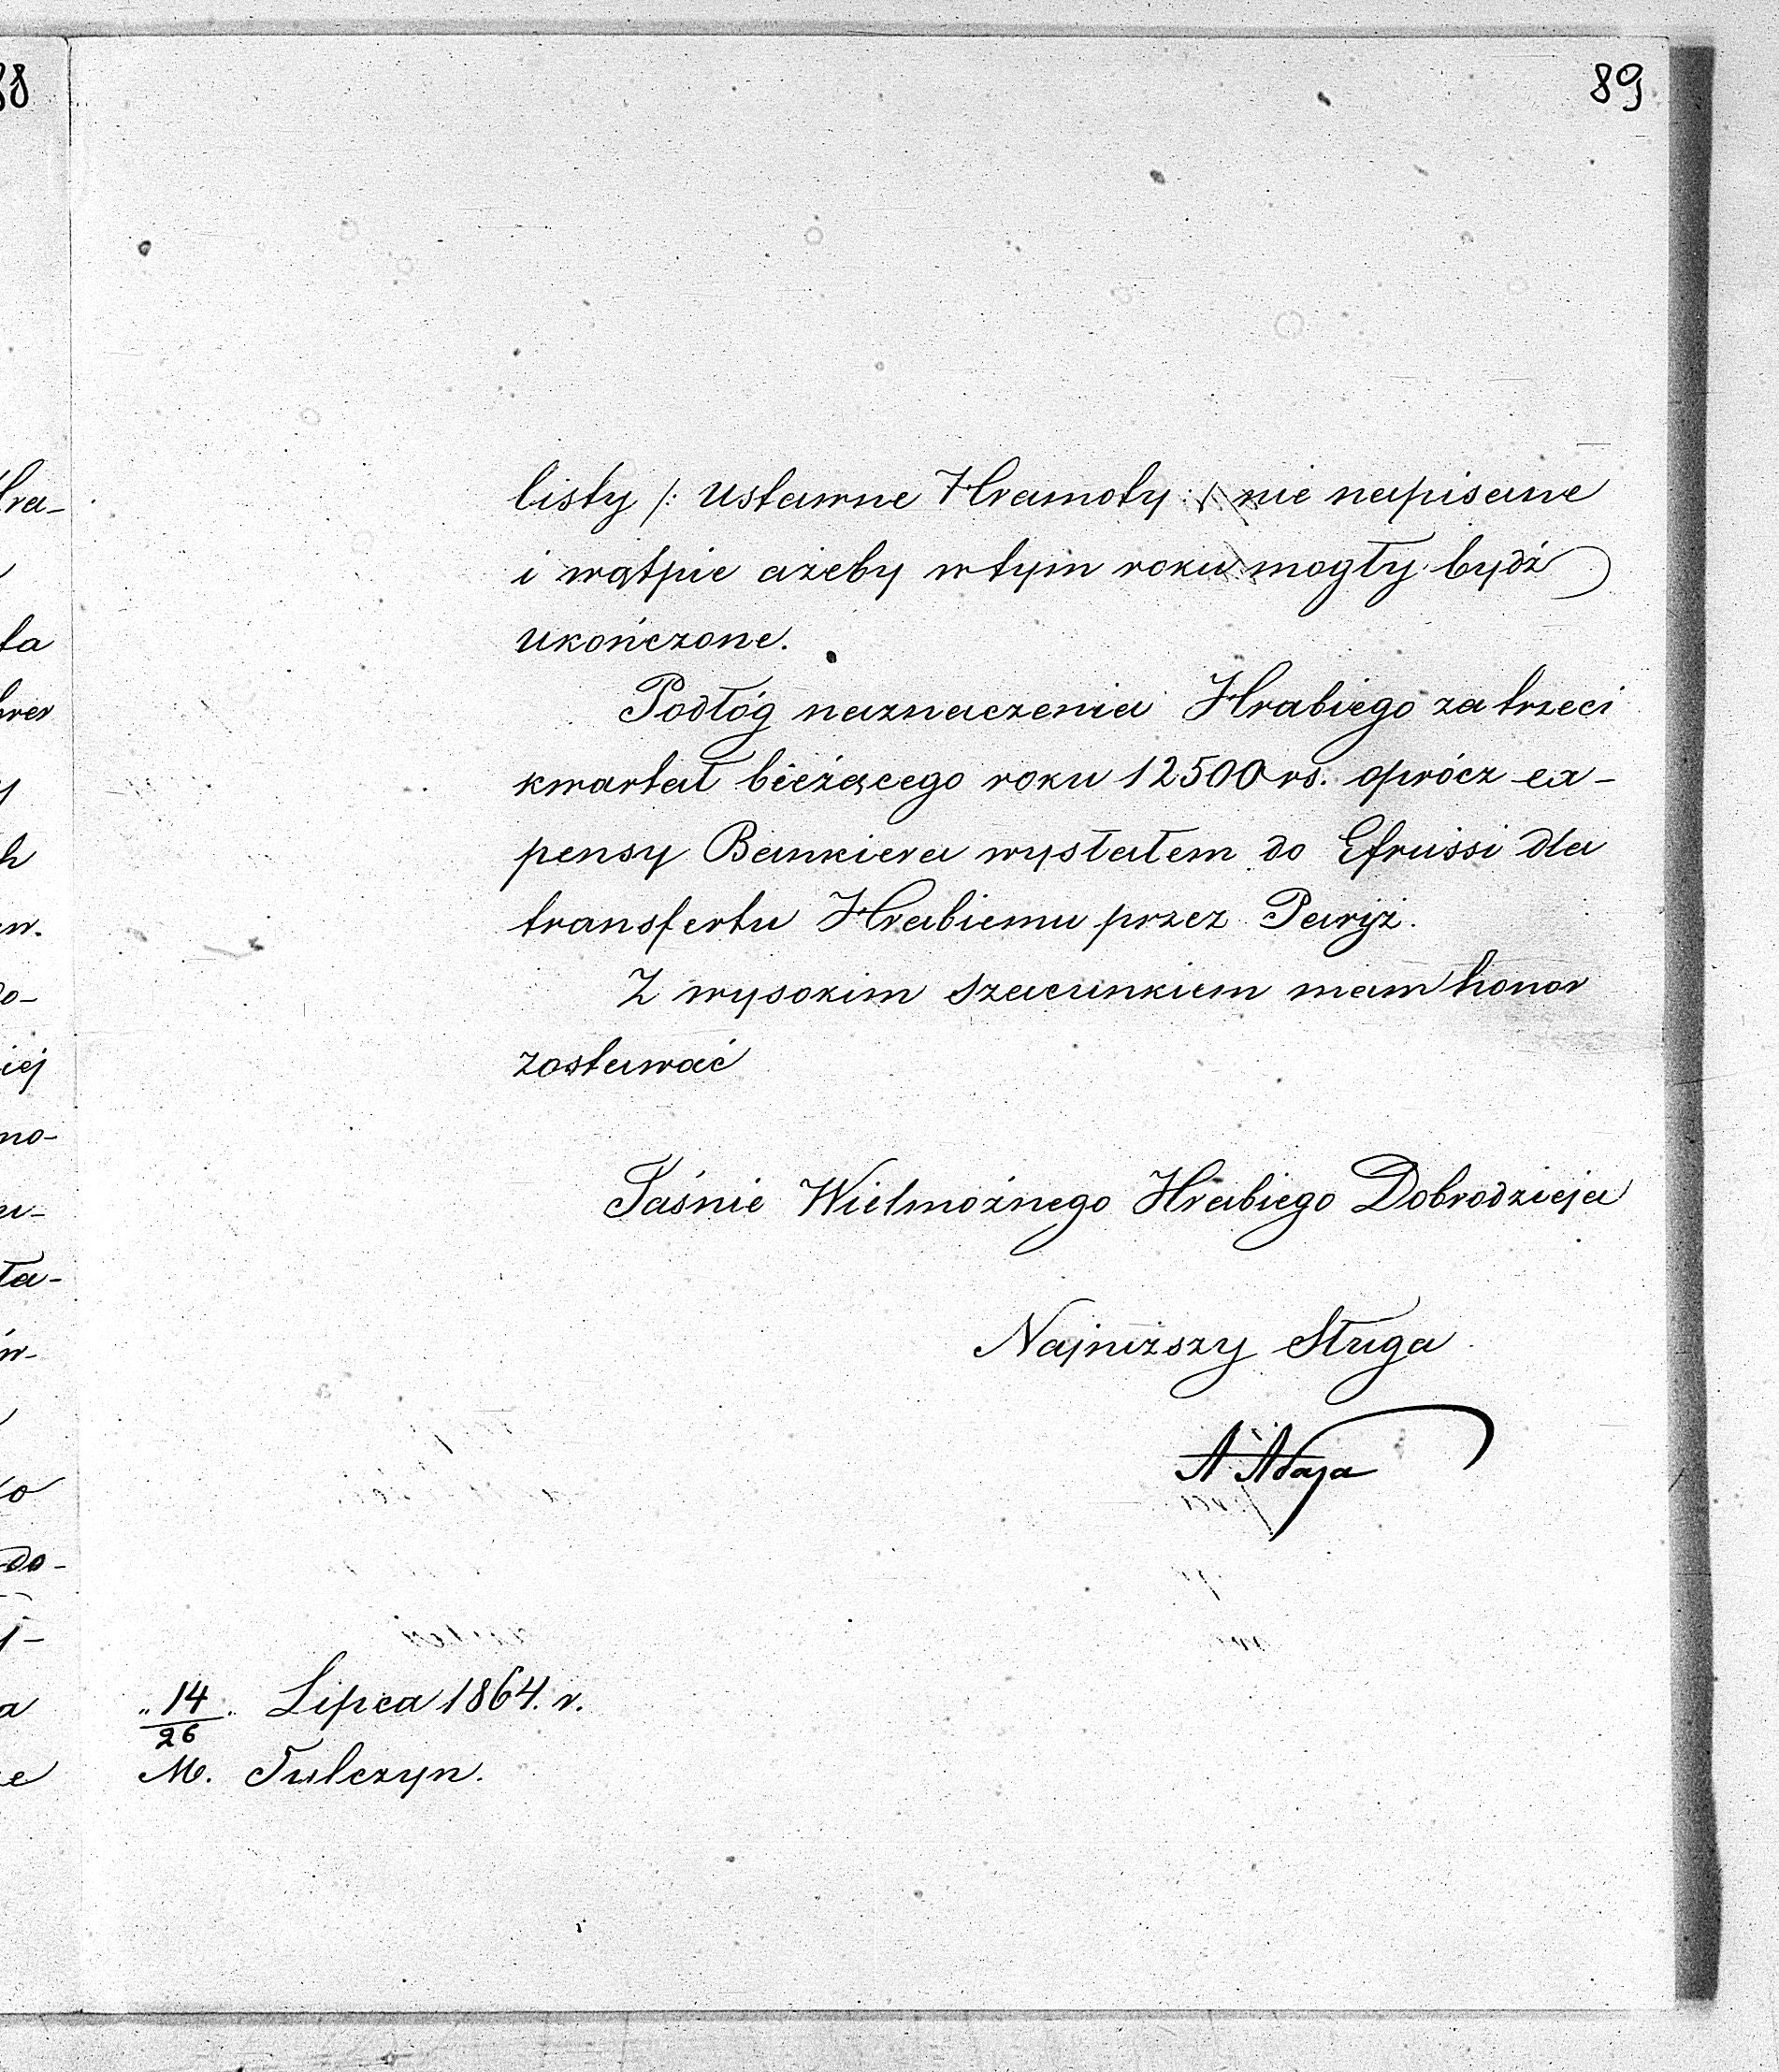 89
listy /: Ustawne Hramoty :/ nie napisane
i wątpię ażeby w tym roku mogły bydź
ukończone.
Podłóg naznaczenia Hrabiego za trzeci
kwartał bieżącego roku 12500 rs. oprócz ex-
pensy Bankiera wysłałem do Efrussi dla
transfertu Hrabiemu przez Paryż.
Z wysokim szacunkiem mam honor
zostawać
Jaśnie Wielmożnego Hrabiego Dobrodzieja
Najniższy Sługa
„14/26„ Lipca 1864. r.
M. Tulczyn.